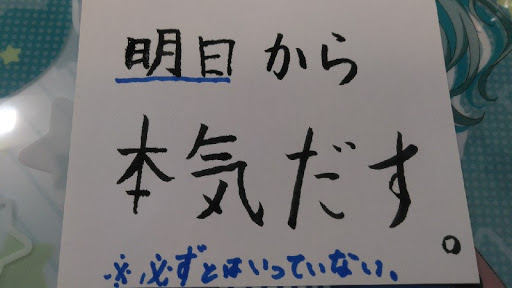 明日から
本気だす。
※必ずとはいっていない。